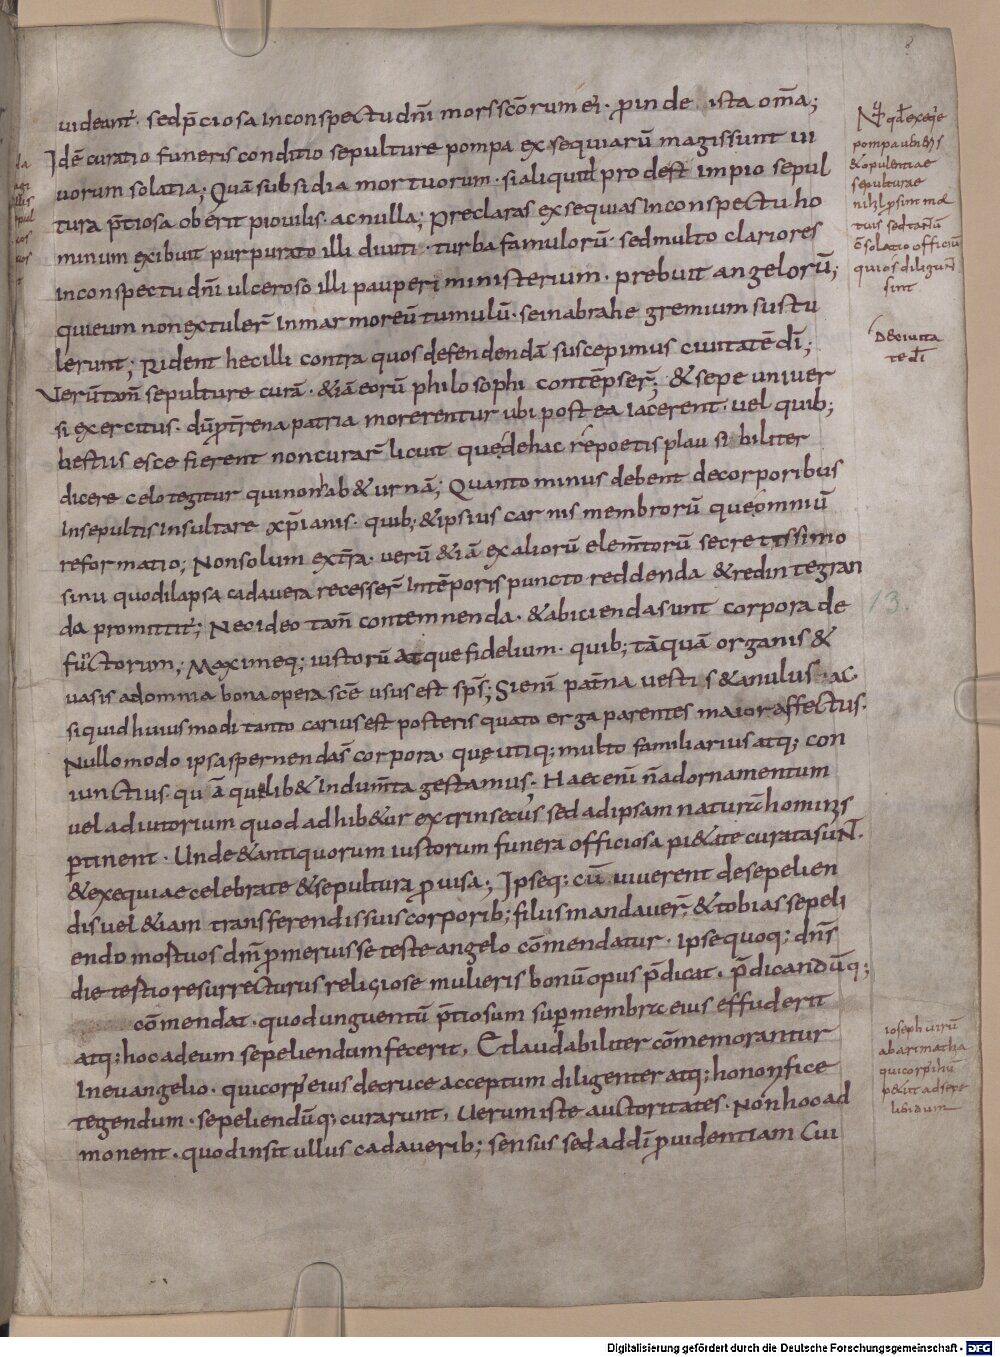 uideant. sed p̄ciosa in conspectu dn̄i mors scōrum ei. ꝓinde ista om̄a;
Idē curatio funeris conditio sepulture pompa exsequiarū magis sunt ui
uorum solatia; Quā subsidia mortuorum. si aliquid prodest impio sepul
tura p̄tiosa oberit pio uilis. ac nulla; Preclaras exsequias in conspectu ho
minum exibuit purpurato illi diuiti. turba famulorū. sed multo clariores
in conspectu dn̄i ulceroso illi pauperi ministerium. prebuit angelorū;
qui eum non extuler̄ in marmoreū tumulū. se in abrahe gremium sustu
lerunt; Rident hec illi contra quos defendendā suscepimus ciuitatē dī;
Uerūtam̄ sepulture curā. &iā eorū philosophi contēpser̄; & sepe uniuer
si exercitus. dū ꝑ t̄rena patria morerentur ubi postea iacerent. uel quib;
bestiis esce fierent non curar̄ licuit que de hac re poetis plausibiliter
dicere celo tegitur qui non hab& urnā; Quanto minus debent de corporibus
insepultis insultare xp̄ianis. quib; & ipsius carnis membrorū que omniū
reformatio; Non solum ex t̄ra. uerū &iā ex aliorū elem̄torū secretissimo
sinu quo dilapsa cadauera recesser̄ in tēporis puncto reddenda & redintegran
da promittit; Nec ideo tam̄ contemnenda. & abicienda sunt corpora de
functorum; Maximeq; iustorū atque fidelium. quib; tāquā organis &
uasis ad omnia bona opera sc̄e usus est sp̄s; Si eni patn̄a uestis & anulus. ac
si quid huiusmodi tanto carius est posteris quāto erga parentes maior affectus.
Nullo modo ipsa spernenda st̄ corpora. que utiq; multo familiarius atq; con
iunctius. quā quelib& indum̄ta gestamus. Haec enī n̄ ad ornamentum
uel adiutorium quod adhib&ur extrinsecus sed ad ipsam naturā hominis
ꝑtinent. Unde & antiquorum iustorum funera officiosa pi&ate curata sunt.
& exequiae celebrate & sepultura ꝓuisa; Ipseq; cū uiuerent de sepelien
dis uel &iam transferendis suis corporib; filiis mandauer̄; & tobias sepeli
endo mortuos dm̄ ꝓmeruisse teste angelo cōmendatur. Ipse quoq; dn̄s
die tertio resurrecturus religiose mulieris bonū opus p̄dicat. p̄dicandūq;
cōmendat. quod unguentū p̄tiosum suꝑ membra eius effuderit
atq; hoc ad eum sepeliendum fecerit. Et laudabiliter cōmemorantur
In euangelio. qui corp' eius de cruce acceptum diligenter atq; honorifice
tegendum. sepeliendūq; curarunt. Uerum iste auctoritates. Non hoc ad
monent. quod insit ullus cadauerib; sensus sed ad dī ꝓuidentiam cui
De ciuita
te dī
ioseph uirū
ab arimathia
qui corp' ihū
p&iit ad sepe
liendum
13.
Digitalisierung gefördert durch die Deutsche Forschungsgemeinschaft - DFG